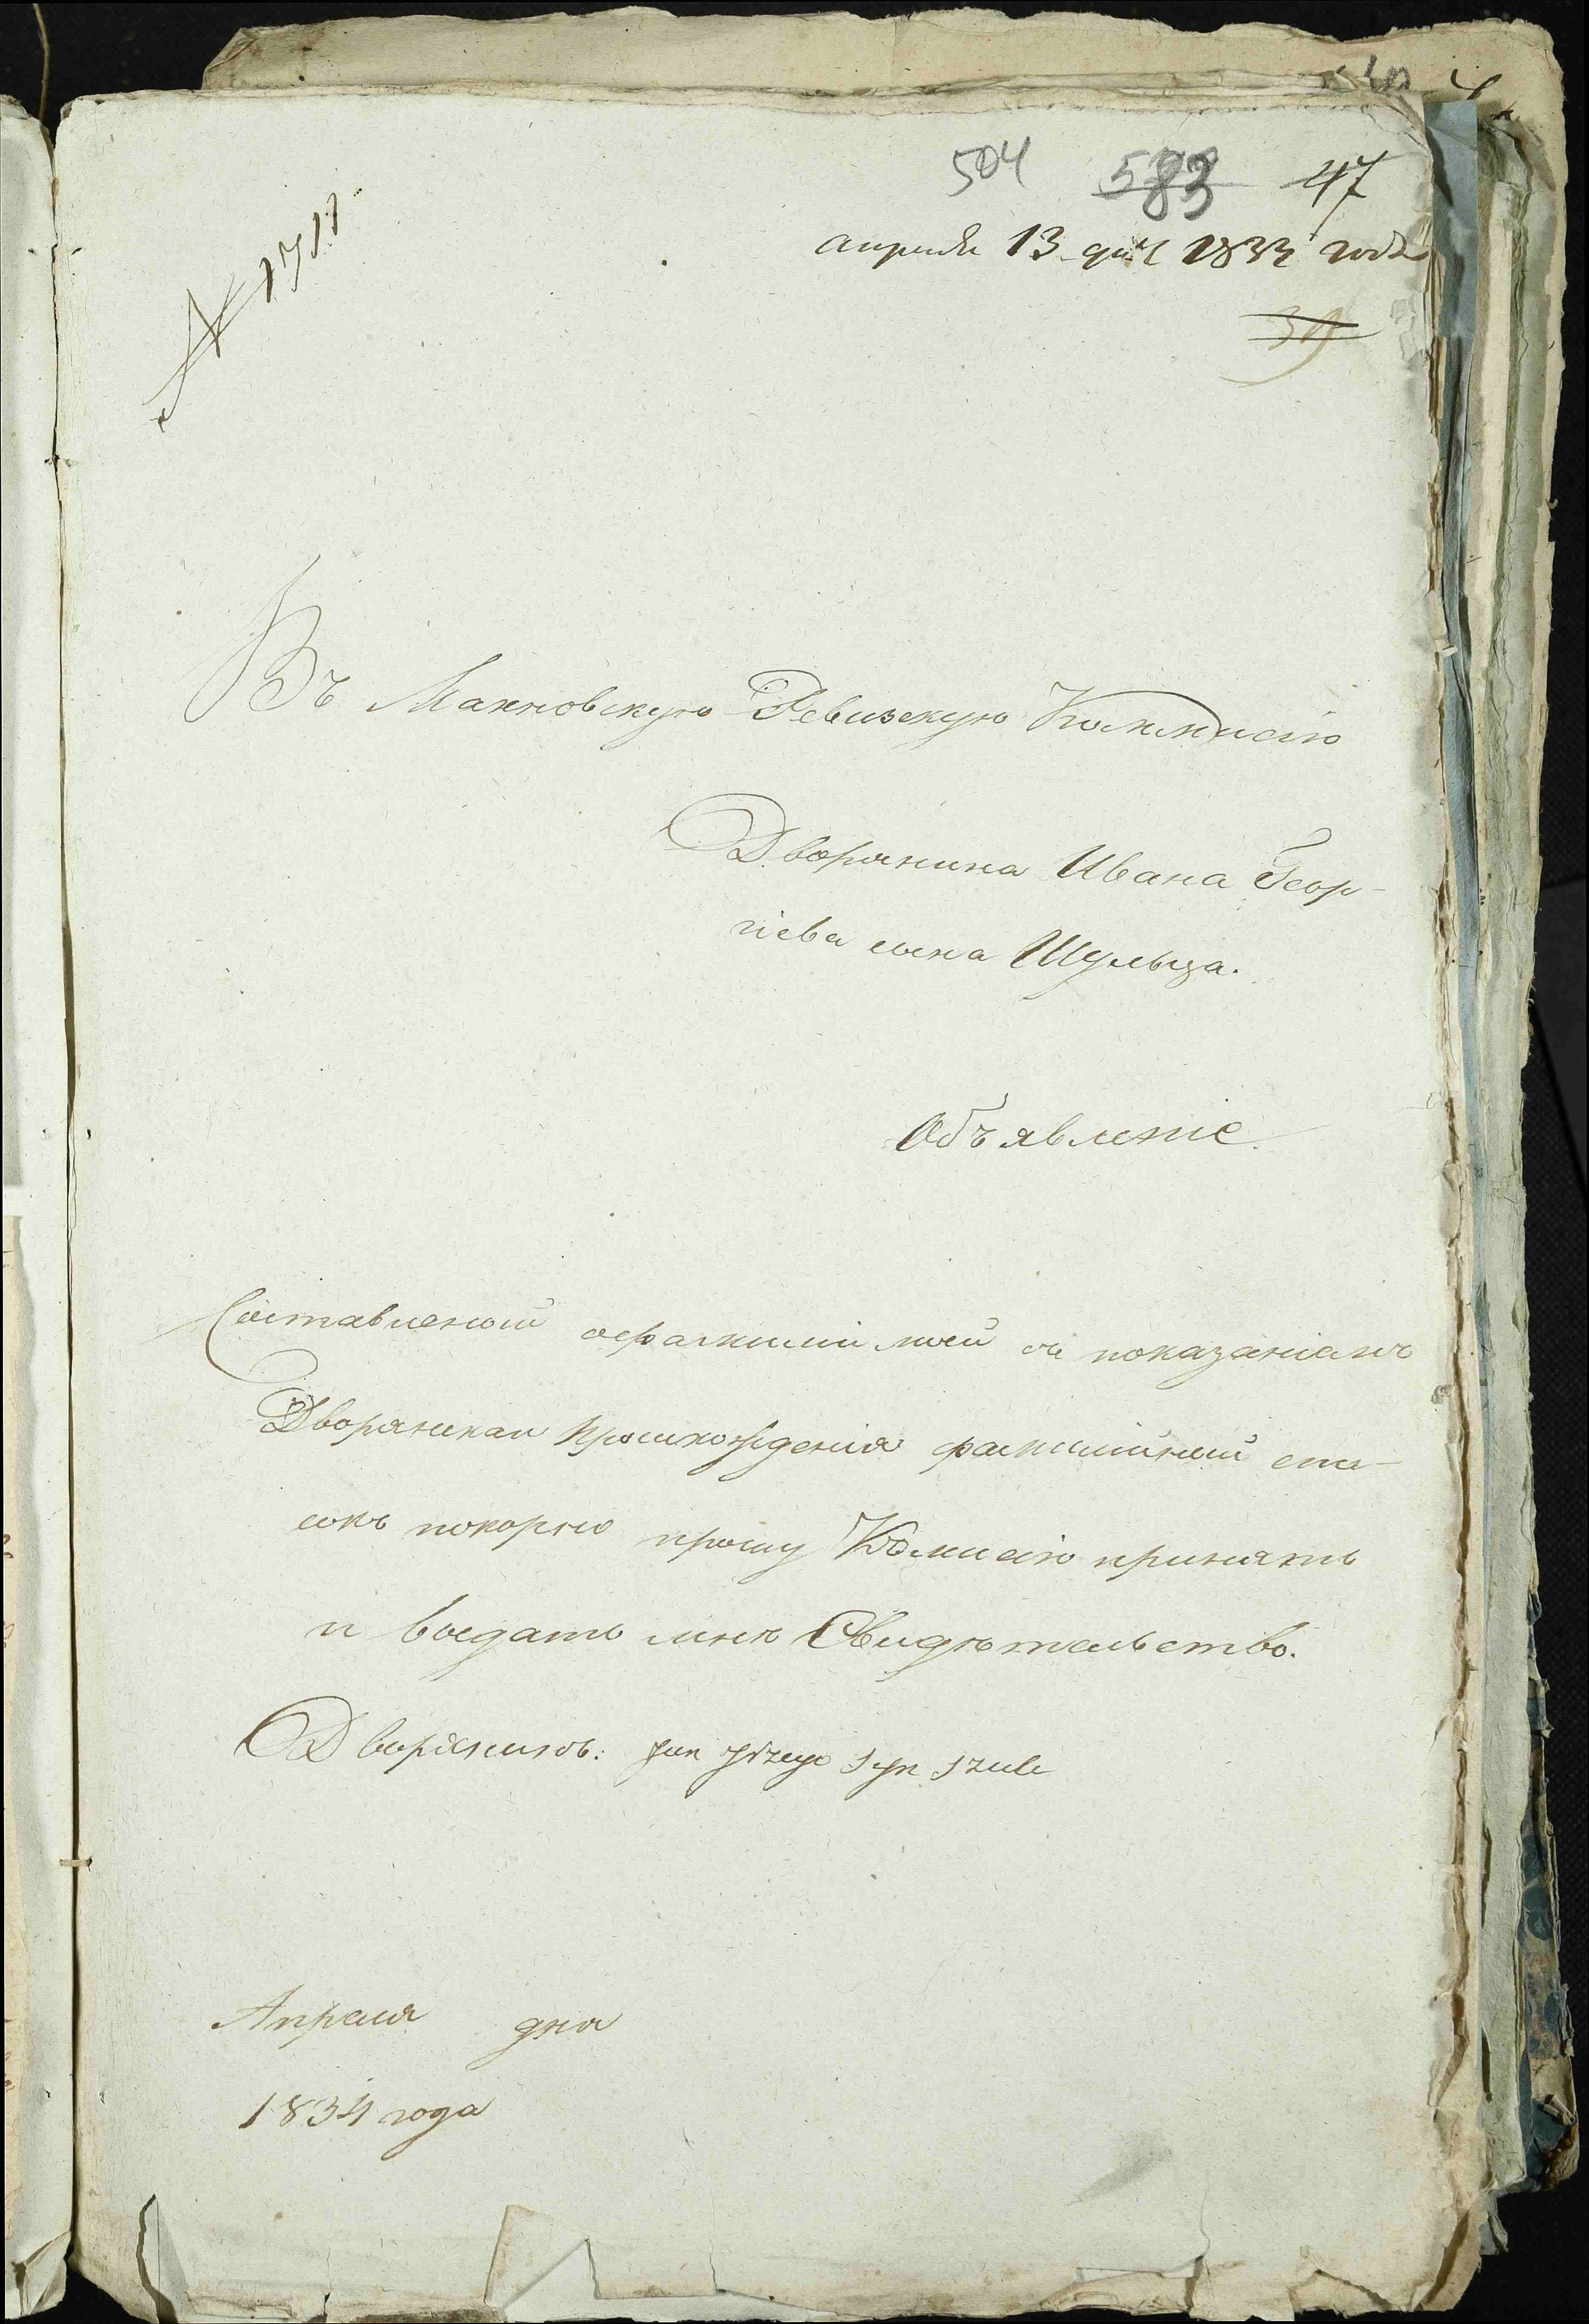 504 583 47
апреля 13 дня 1834 года
39
№ 1711
Въ Махновскую Ревизскую Коммисію
Дворянина Ивана Геор-
гіева сына Шульца.
Объявленіе
Составленой офамиліи моей съ показаніемъ
Дворянскаи происхожденія фамилійной спи-
сокъ покорно прошу Комисію принять
и выдать мнѣ Свидѣтельство.
Дворянинъ: Jan syn Szulc
Апреля дня
1834 года